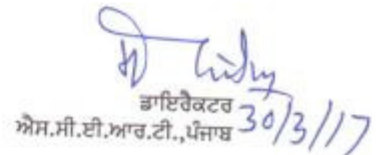 ਡਾਇਰੈਕਟਰ
ਐਸ.ਸੀ.ਈ.ਆਰ.ਟੀ.,ਪੰਜਾਬ 30/3/17